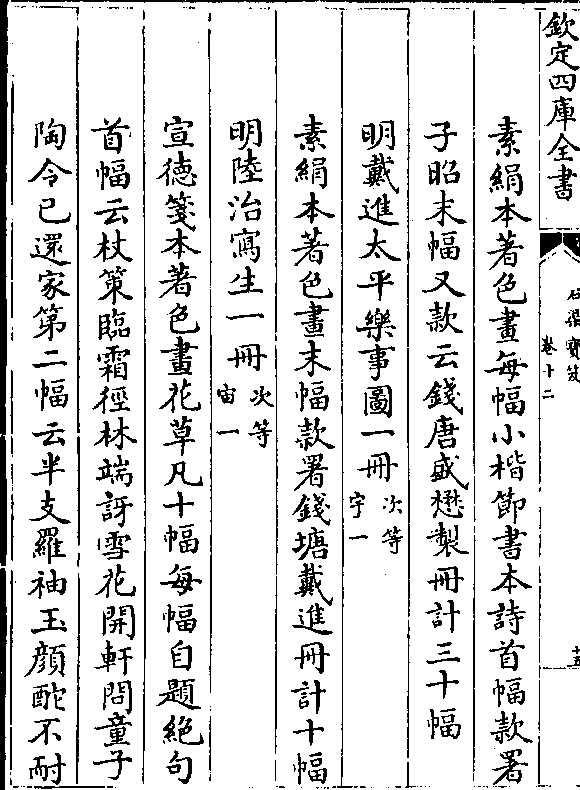 欽定四庫全書
石渠寶笈
卷十二
素絹本著色畫每幅小楷節書本詩首幅款署
子昭末幅又款云錢唐盛懋製冊計三十幅
明戴進太平樂事圖一冊次等
宇一
素絹本著色畫末幅款署錢塘戴進冊計十幅
明陸治寫生一冊次等
宙一
宣德箋本著色畫花草凡十幅每幅自題絕句
首幅云杖策臨霜徑林端訝雪花開軒問童子
陶令已還家第二幅云半支羅袖玉顏酡不耐